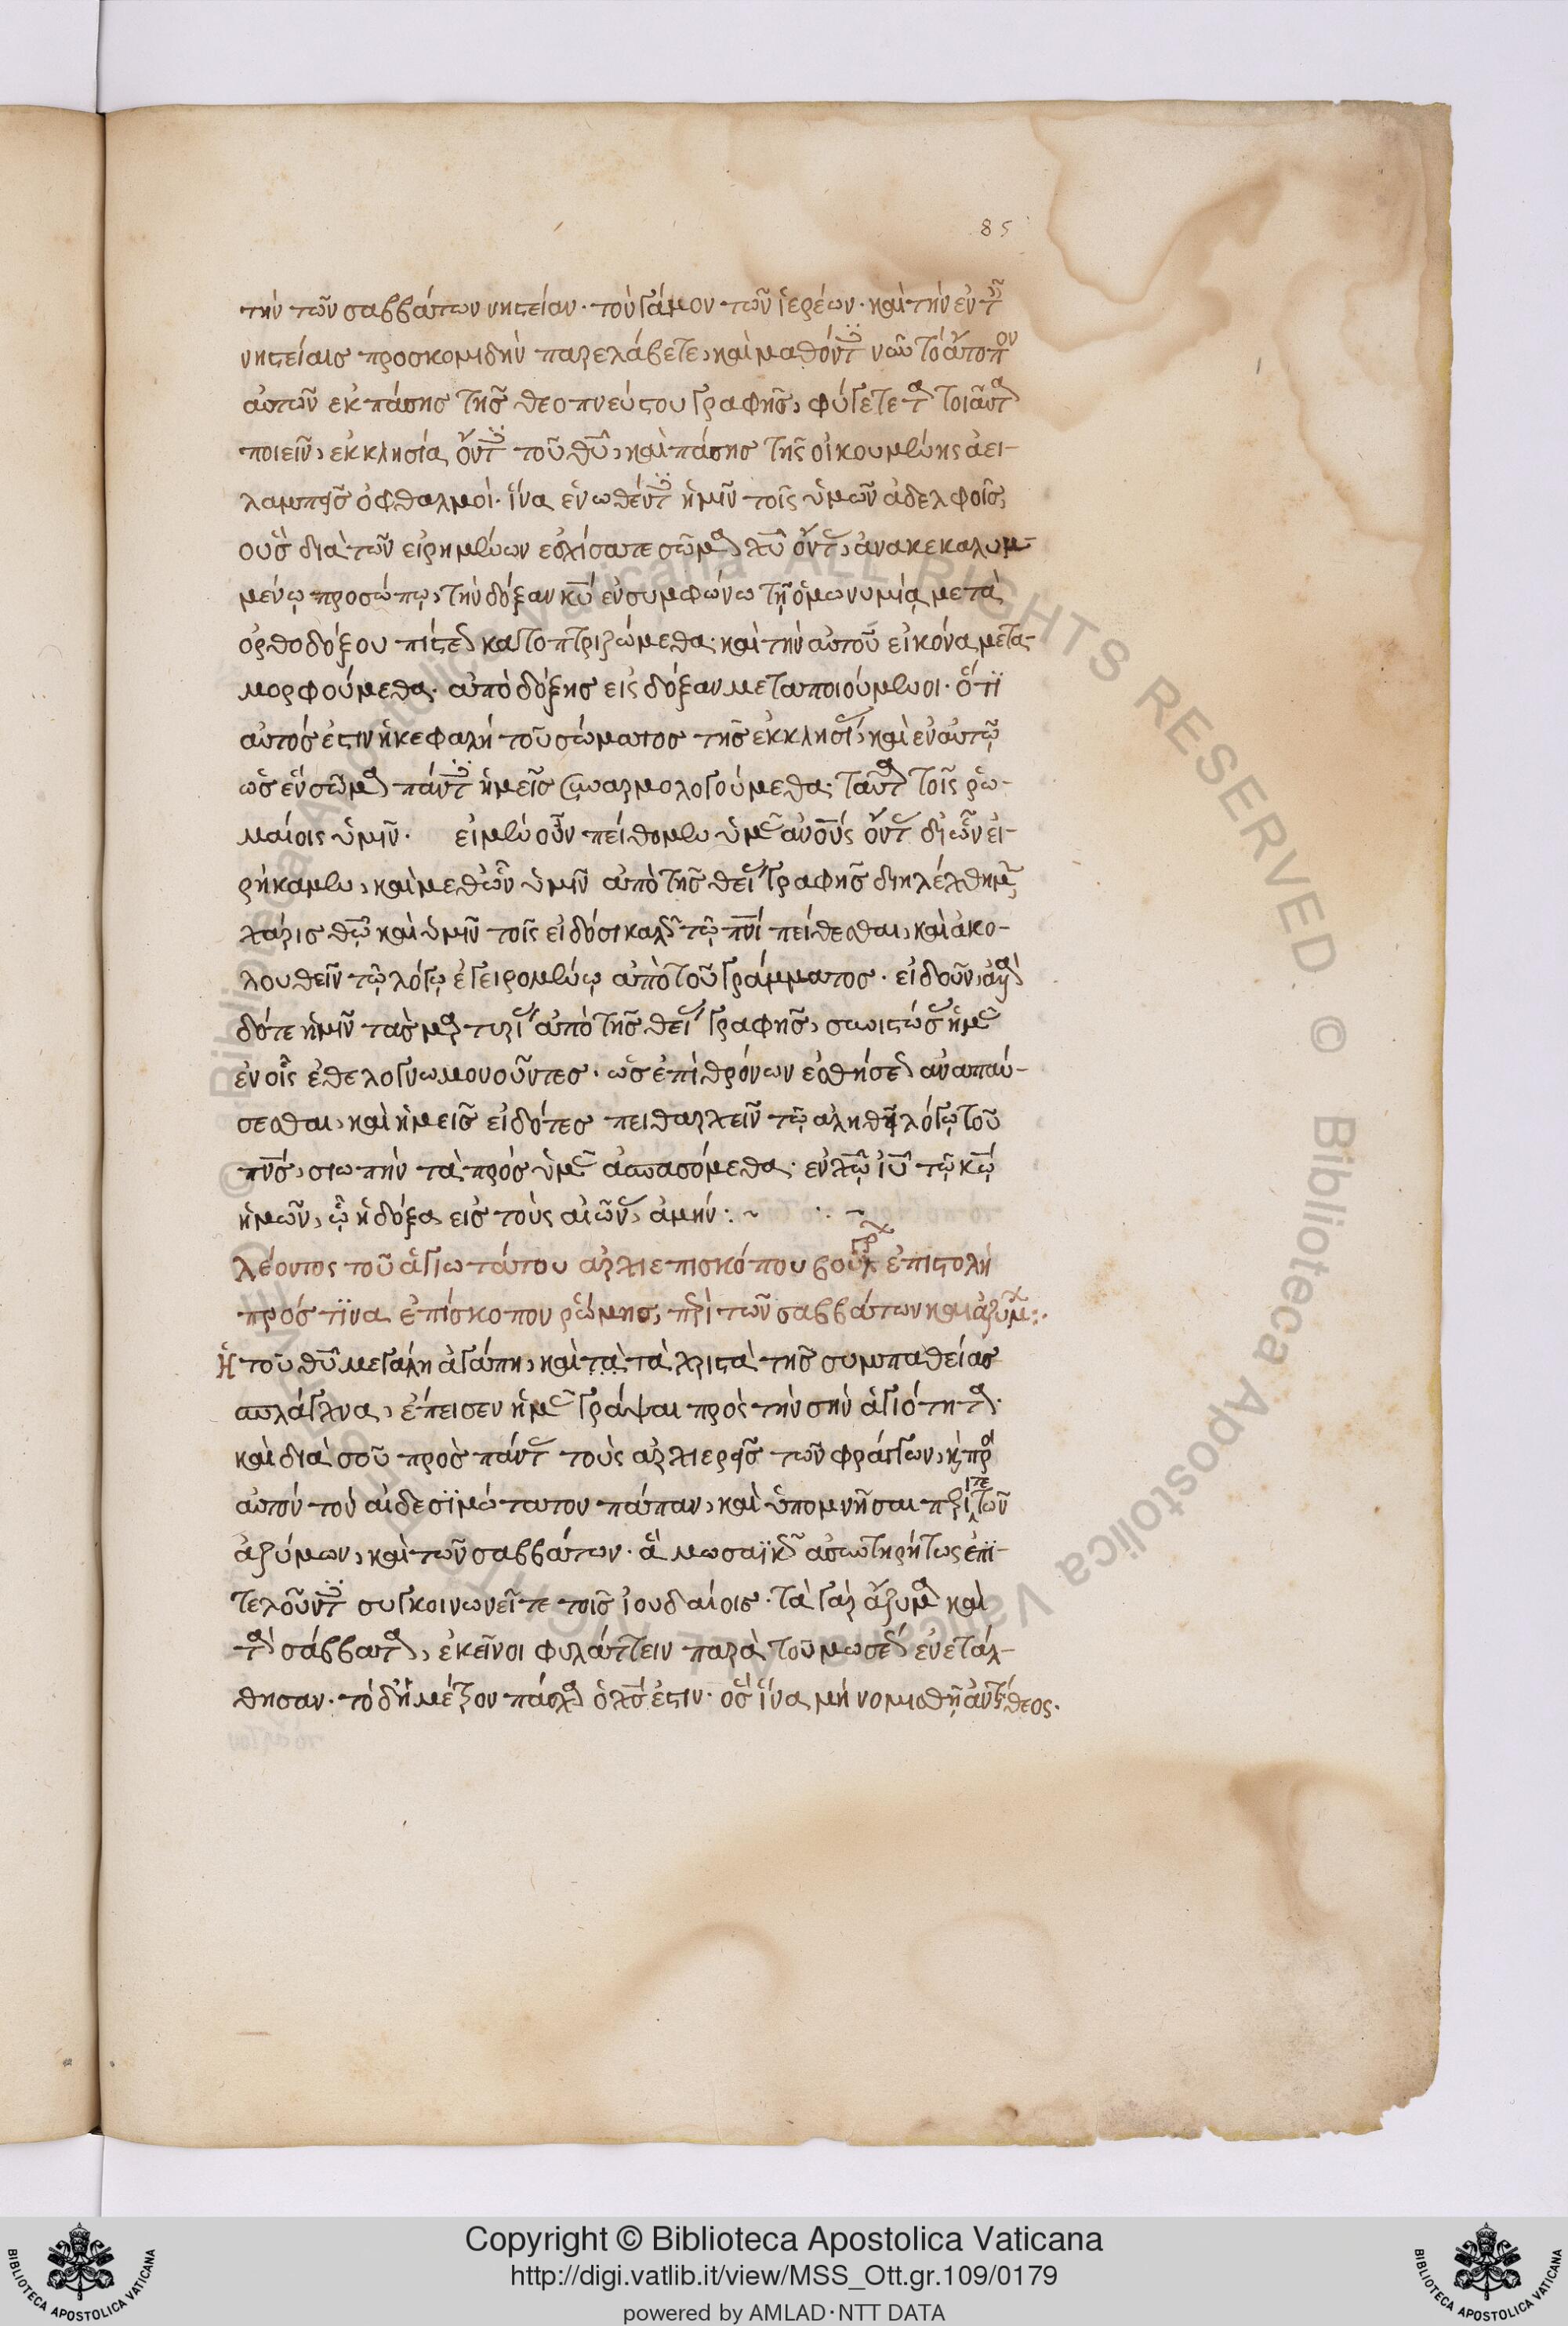 85
τὴν τῶν σαββάτων νηστείαν· τὸν γάμον τῶν ἱερέων· καὶ τὴν ἐν ταῖς
νηστείαις προσκομιδὴν παρελάβετε, καὶ μαθόντες νῦν τὸ ἄτοπον
αὐτῶν ἐκ πάσης τῆς θεοπνεύστου γραφῆς, φύγετε τὰ τοιαῦτα
ποιεῖν, ἐκκλησία ὄντες τοῦ θυ, καὶ πάσης τῆς οἰκουμένης ἀει-
λαμπεῖς ὀφθαλμοί· ἵνα ἑνωθέντες ἡμῖν τοῖς ὑμῶν ἀδελφοῖς,
οὓς διὰ τῶν εἰρημένων ἐσχίσατε σῶμα χυ ὄντας, ἀνακεκαλυμ-
μένῳ προσώπῳ, τὴν δόξαν κυ ἐν συμφώνω τῇ ὁμωνυμίᾳ μετὰ
ὀρθοδόξου πίστεως κατοπτριζώμεθα· καὶ τὴν αὐτοῦ εἰκόνα μετα-
μορφούμεθα· ἀπὸ δόξης εἰς δόξαν μεταποιούμενοι· ὅτι
αὐτός ἐστιν ἡ κεφαλὴ τοῦ σώματος τῆς ἐκκλησίας, καὶ ἐν αὐτῷ
ὡς ἓν σῶμα πάντες ἡμεῖς συναρμολογούμεθα· ταῦτα τοῖς ῥω-
μαίοις ὑμῖν· εἰ μὲν οὖν πείθομεν ὑμᾶς ανους ὄντας δι' ὧν εἰ-
ρήκαμεν, καὶ μεθ' ὧν ὑμῖν ἀπὸ τῆς θείας γραφῆς διηλέχθημεν
χάρις θω καὶ ὑμῖν τοῖς εἰδόσι καλῶς τῷ πνι πείθεσθαι, καὶ ἀκο-
λουθεῖν τῷ λόγῳ ἐγειρομένῳ ἀπὸ τοῦ γράμματος· εἰ δ' οὖν,
δότε ἡμῖν τὰς μαρτυρίας ἀπὸ τῆς θείας γραφῆς, συνιστώσας ἡμᾶς
ἐν οἷς ἐθελογνωμονοῦντες· ὡς ἐπὶ θρόνων ἐσθήσεως ἀναπαύ-
σεσθαι, καὶ ἡμεῖς εἰδότες πειθαρχεῖν τῷ ἀληθεῖ λόγῳ τοῦ
πνς, σιωπὴν τὰ πρὸς ὑμᾶς ἀσπασόμεθα· ἐν χω ιυ τῷ κω
ἡμῶν, ᾧ ἡ δόξα εἰς τοὺς αἰῶνας, ἀμήν:~ ∴ ~
λέοντος τοῦ ἁγιωτάτου ἀρχιεπισκόπου βουλγαρίας ἐπιστολὴ
πρός τινα ἐπίσκοπον ῥώμης, περὶ τῶν σαββάτων καὶ ἀζύμων:·
Ἡ τοῦ θυ μεγάλη ἀγάπη, καὶ τὰ τὰ χρηστὰ τῆς συμπαθείας
σπλάγχνα, ἔπεισεν ἡμᾶς γράψαι πρὸς τὴν σὴν ἁγιότητα·
καὶ διὰ σοῦ πρὸς πάντας τοὺς ἀρχιερεῖς τῶν φράγγων, καὶ πρὸς
αὐτὸν τὸν αἰδεσιμώτατον πάπαν, καὶ ὑπομνῆσαι περί τε τῶν
ἀζύμων, καὶ τῶν σαββάτων· ἃ μωσαϊκῶς ἀσυντηρήτως ἐπι-
τελοῦντες συγκοινωνεῖτε τοῖς ἰουδαίοις· τὰ γὰρ ἄζυμα καὶ
τὰ σάββατα, ἐκεῖνοι φυλάττειν παρὰ τοῦ μωσέως ἐνετάλ-
θησαν· τὸ δ' ἡμέτερον πάσχα ὁ χς ἐστιν· ὃς ἵνα μὴ νομισθῇ ἀντίθεος·
Copyright © Biblioteca Apostolica Vaticana
http://digi.vatlib.it/view/MSS_Ott.gr.109/0179
powered by AMLAD·NTT DATA
BIBLIOTECA APOSTOLICA VATICANA
BIBLIOTECA APOSTOLICA VATICANA
© Biblioteca Apostolica Vaticana ALL RIGHTS RESERVED © Biblioteca Apostolica Vaticana ALL RIGHTS RESERVED